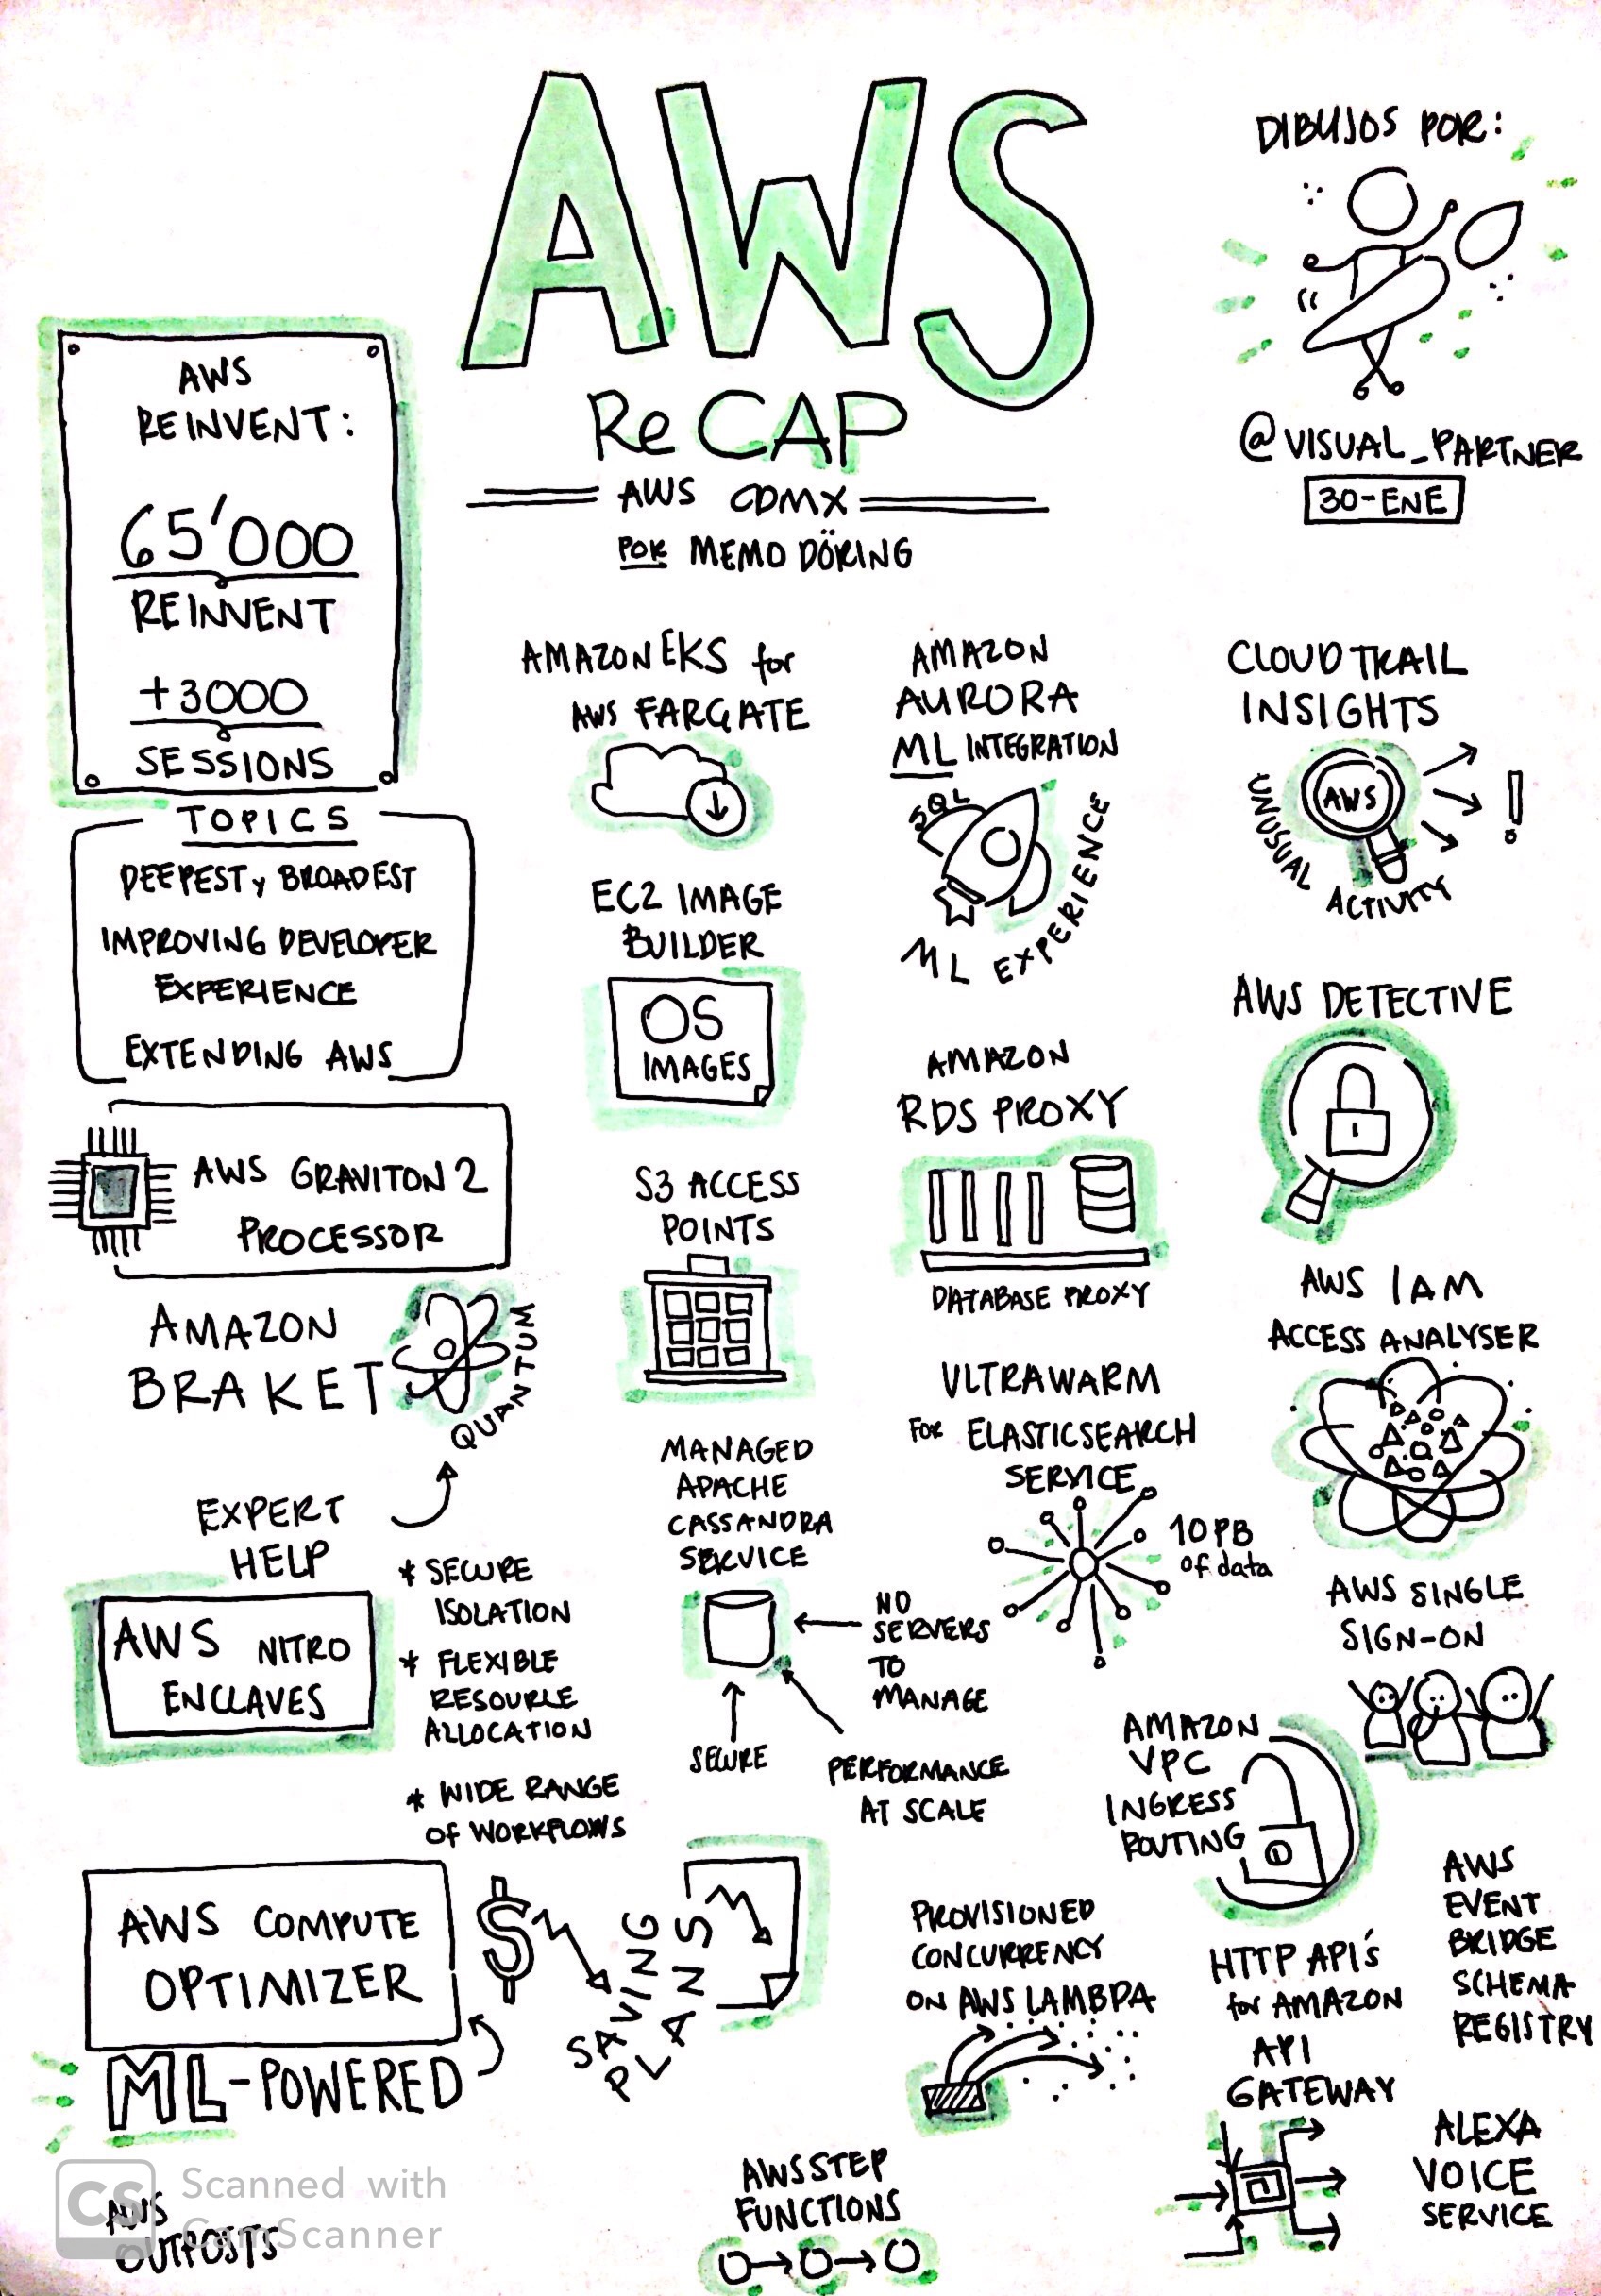 AWS
ReCAP
AWS CDMX
POR MEMO DÖRING
DIBUJOS POR:
@VISUAL_PARTNER
30-ENE
AWS
REINVENT:
65'000
REINVENT
+3000
SESSIONS
TOPICS
DEEPEST y BROADEST
IMPROVING DEVELOPER
EXPERIENCE
EXTENDING AWS
AWS GRAVITON 2
PROCESSOR
AMAZON
BRAKET
QUANTUM
EXPERT
HELP
AWS NITRO
ENCLAVES
* SECURE
ISOLATION
* FLEXIBLE
RESOURCE
ALLOCATION
* WIDE RANGE
OF WORKFLOWS
AWS COMPUTE
OPTIMIZER
ML-POWERED
$
SAVING
PLANS
AWS
OUTPOSTS
AMAZON EKS for
AWS FARGATE
EC2 IMAGE
BUILDER
OS
IMAGES
S3 ACCESS
POINTS
MANAGED
APACHE
CASSANDRA
SERVICE
NO
SERVERS
TO
MANAGE
SECURE
PERFORMANCE
AT SCALE
AWS STEP
FUNCTIONS
AMAZON
AURORA
ML INTEGRATION
SQL
ML EXPERIENCE
AMAZON
RDS PROXY
DATABASE PROXY
ULTRAWARM
FOR ELASTICSEARCH
SERVICE
10 PB
of data
PROVISIONED
CONCURRENCY
ON AWS LAMBDA
CLOUD TRAIL
INSIGHTS
AWS
!
UNUSUAL ACTIVITY
AWS DETECTIVE
AWS IAM
ACCESS ANALYSER
AWS SINGLE
SIGN-ON
AMAZON
VPC
INGRESS
ROUTING
HTTP API's
for AMAZON
API
GATEWAY
AWS
EVENT
BRIDGE
SCHEMA
REGISTRY
ALEXA
VOICE
SERVICE
CS
Scanned with
CamScanner